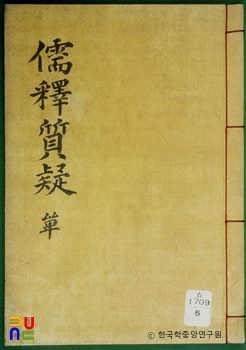 儒釋質疑
單
古
1709
5
PUCC
© 한국학중앙연구원